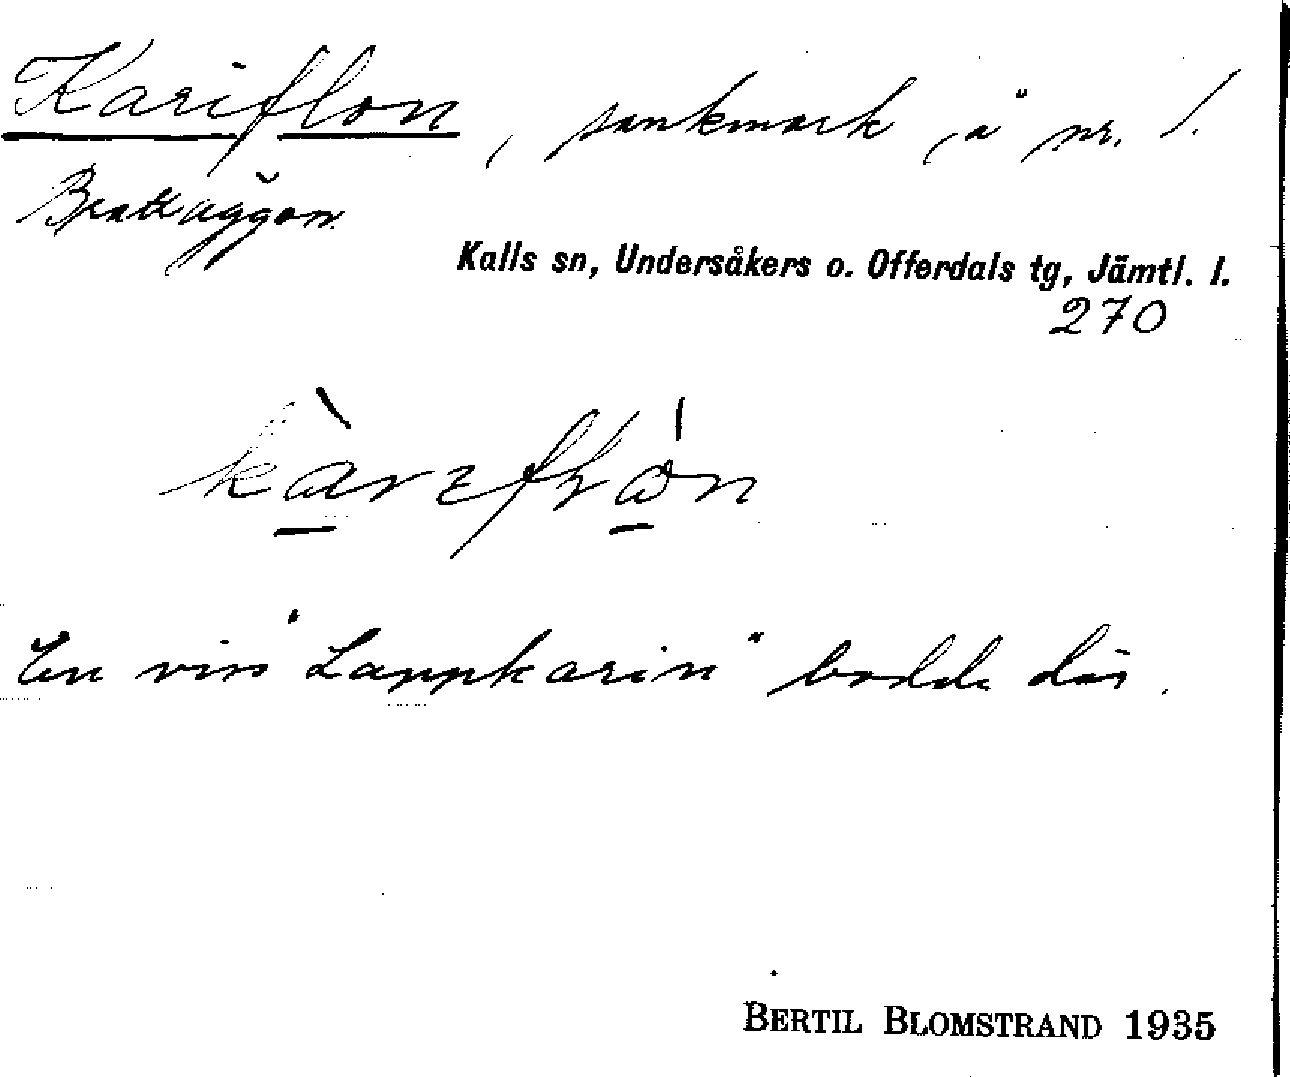 Kariflon, sankmark, å nr. 1.
Brattuggon.
Kalls sn, Undersåkers o. Offerdals tg, Jämtl. l.
270
En viss "Lappkarin" bodde där.
BERTIL BLOMSTRAND 1935